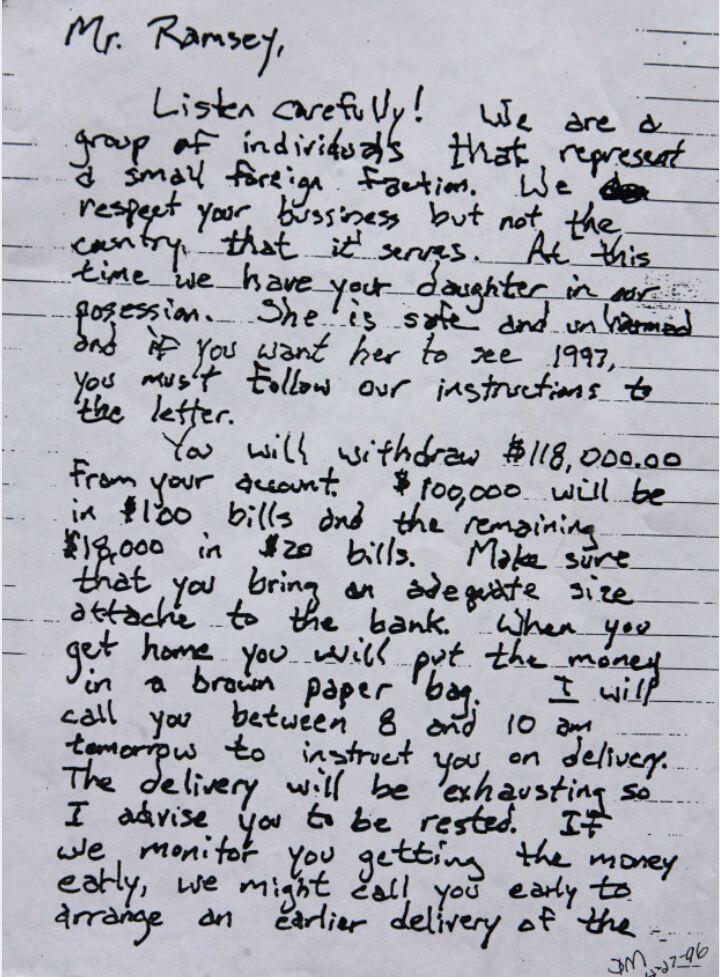 Mr. Ramsey,
Listen carefully! We are a
group of individuals that represent
a small foreign faction. We
respect your bussiness but not the
country that it serves. At this
time we have your daughter in our
posession. She is safe and unharmed
and if you want her to see 1997,
you must follow our instructions to
the letter.
You will withdraw $118,000.00
from your account. $100,000 will be
in $100 bills and the remaining
$18,000 in $20 bills. Make sure
that you bring an adequate size
attache to the bank. When you
get home you will put the money
in a brown paper bag. I will
call you between 8 and 10 am
tomorrow to instruct you on delivery.
The delivery will be exhausting so
I advise you to be rested. If
we monitor you getting the money
early, we might call you early to
arrange an earlier delivery of the
DM 12-27-96